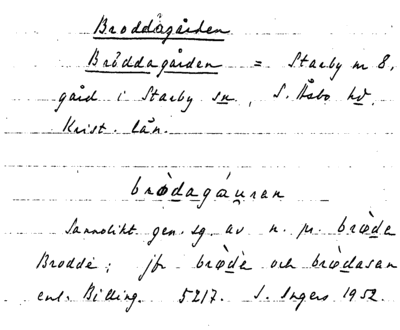 Broddagården
Bröddagården = Starby nr 8,
gård i Starby sn, S. Åsbo hd,
Krist. län.
brø̀dagáu̯ran
Sannolikt gen. sg. av n. pr. brø̀da
Brodde; jfr brø̀dè och brø̀dasan
enl. Billing. 5217. I. Ingers 1952.